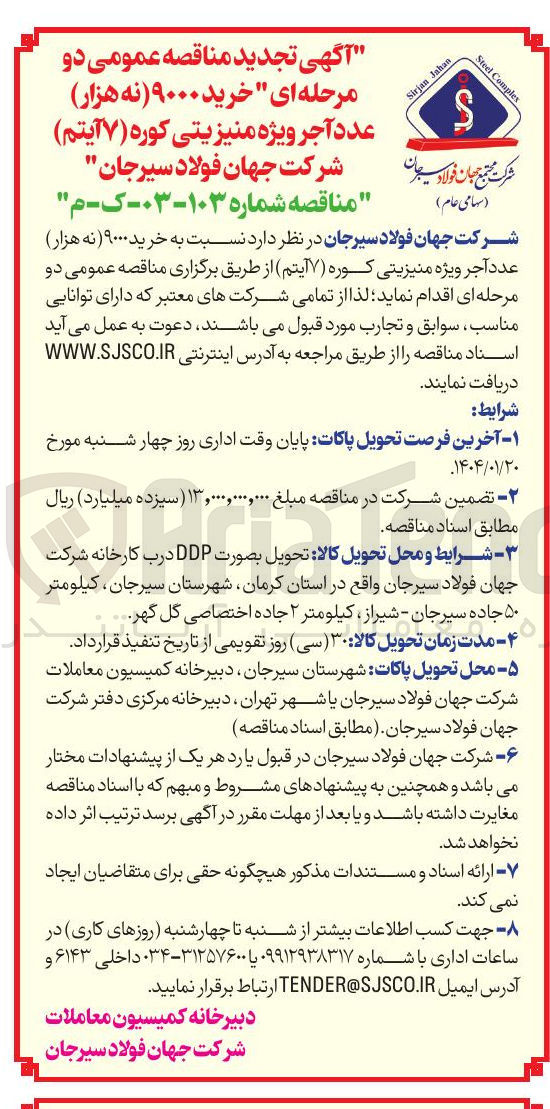 "آگهی تجدید مناقصه عمومی دو
مرحله ای "خرید ۹۰۰۰ (نه هزار)
عدد آجر ویژه منیزیتی کوره (۷آیتم)
شرکت جهان فولاد سیرجان"
"مناقصه شماره ۱۰۳-۰۳-ک-م"
Sirjan Jahan Steel Complex
شرکت مجتمع جهان فولاد سیرجان
(سهامی عام)
شرکت جهان فولاد سیرجان در نظر دارد نسبت به خرید ۹۰۰۰(نه هزار)
عدد آجر ویژه منیزیتی کوره (۷آیتم) از طریق برگزاری مناقصه عمومی دو
مرحله ای اقدام نماید؛ لذا از تمامی شرکت های معتبر که دارای توانایی
مناسب، سوابق و تجارب مورد قبول می باشند، دعوت به عمل می آید
اسناد مناقصه را از طریق مراجعه به آدرس اینترنتی WWW.SJSCO.IR
دریافت نمایند.
شرایط:
۱- آخرین فرصت تحویل پاکات: پایان وقت اداری روز چهار شنبه مورخ
۱۴۰۴/۰۱/۲۰.
۲- تضمین شرکت در مناقصه مبلغ ۱۳,۰۰۰,۰۰۰,۰۰۰ (سیزده میلیارد) ریال
مطابق اسناد مناقصه.
۳- شرایط و محل تحویل کالا: تحویل بصورت DDP درب کارخانه شرکت
جهان فولاد سیرجان واقع در استان کرمان، شهرستان سیرجان، کیلومتر
۵۰ جاده سیرجان-شیراز، کیلومتر ۲ جاده اختصاصی گل گهر.
۴- مدت زمان تحویل کالا: ۳۰ (سی) روز تقویمی از تاریخ تنفیذ قرارداد.
۵- محل تحویل پاکات: شهرستان سیرجان، دبیرخانه کمیسیون معاملات
شرکت جهان فولاد سیرجان یا شهر تهران، دبیرخانه مرکزی دفتر شرکت
جهان فولاد سیرجان. (مطابق اسناد مناقصه)
۶- شرکت جهان فولاد سیرجان در قبول یا رد هر یک از پیشنهادات مختار
می باشد و همچنین به پیشنهادهای مشروط و مبهم که با اسناد مناقصه
مغایرت داشته باشد و یا بعد از مهلت مقرر در آگهی برسد ترتیب اثر داده
نخواهد شد.
۷- ارائه اسناد و مستندات مذکور هیچگونه حقی برای متقاضیان ایجاد
نمی کند.
۸- جهت کسب اطلاعات بیشتر از شنبه تا چهارشنبه (روزهای کاری) در
ساعات اداری با شماره ۰۹۹۱۲۹۳۸۳۱۷ یا ۳۱۲۵۷۶۰۰-۰۳۴ داخلی ۶۱۴۳ و
آدرس ایمیل TENDER@SJSCO.IR ارتباط برقرار نمایید.
دبیرخانه کمیسیون معاملات
شرکت جهان فولاد سیرجان